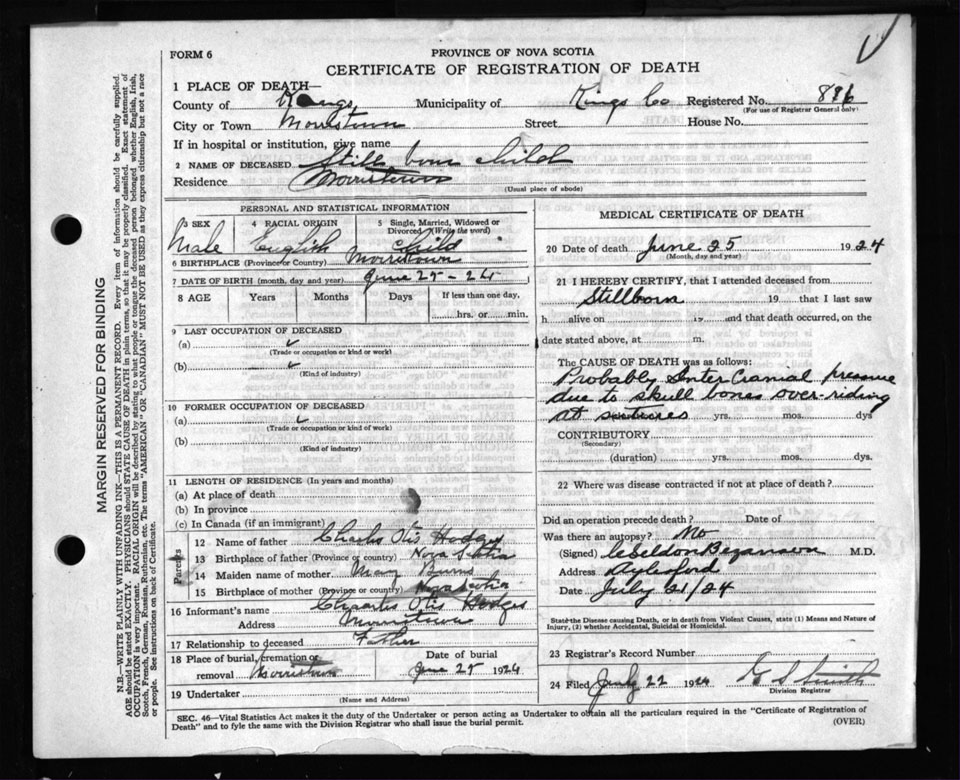 FORM 6
PROVINCE OF NOVA SCOTIA
CERTIFICATE OF REGISTRATION OF DEATH
1 PLACE OF DEATH—
County of Kings Municipality of Kings Co Registered No. 886
(For use of Registrar General only)
City or Town Morristown Street House No.
If in hospital or institution, give name
2 NAME OF DECEASED Still born child
Residence Morristown
(Usual place of abode)
PERSONAL AND STATISTICAL INFORMATION
3 SEX 4 RACIAL ORIGIN 5 Single, Married, Widowed or Divorced (Write the word)
Male English child
6 BIRTHPLACE (Province or Country) Morristown
7 DATE OF BIRTH (month, day and year) June 25-24
8 AGE Years Months Days If less than one day,
hrs. or min.
9 LAST OCCUPATION OF DECEASED
(a)
(Trade or occupation or kind or work)
(b)
(Kind of industry)
10 FORMER OCCUPATION OF DECEASED
(a)
(Trade or occupation or kind of work)
(b)
(Kind of industry)
11 LENGTH OF RESIDENCE (In years and months)
(a) At place of death
(b) In province
(c) In Canada (if an immigrant)
Parents
12 Name of father Charles Otis Hodges
13 Birthplace of father (Province or country) Nova Scotia
14 Maiden name of mother Mary Burns
15 Birthplace of mother (Province or country) Nova Scotia
16 Informant's name Charles Otis Hodges
Address Morristown
17 Relationship to deceased Father
18 Place of burial, cremation or removal Morristown Date of burial June 25 1924
19 Undertaker
(Name and Address)
MEDICAL CERTIFICATE OF DEATH
20 Date of death June 25 1924
(Month, day and year)
21 I HEREBY CERTIFY, that I attended deceased from
Stillborn 19 that I last saw
h alive on 19 and that death occurred, on the
date stated above, at m.
The CAUSE OF DEATH was as follows:
Probably Inter Cranial pressure
due to skull bones over-riding
at sutures yrs. mos. dys
CONTRIBUTORY
(Secondary)
(duration) yrs. mos. dys.
22 Where was disease contracted if not at place of death?
Did an operation precede death? Date of
Was there an autopsy? No
(Signed) Bezanson M.D.
Address Aylesford
Date July 21/24
State the Disease causing Death, or in death from Violent Causes, state (1) Means and Nature of Injury, (2) whether Accidental, Suicidal or Homicidal.
23 Registrar's Record Number
24 Filed July 22 1924 G S Smith
Division Registrar
SEC. 46—Vital Statistics Act makes it the duty of the Undertaker or person acting as Undertaker to obtain all the particulars required in the "Certificate of Registration of
Death" and to fyle the same with the Division Registrar who shall issue the burial permit.
(OVER)
MARGIN RESERVED FOR BINDING
N.B.—WRITE PLAINLY WITH UNFADING INK—THIS IS A PERMANENT RECORD. Every item of information should be carefully supplied.
AGE should be stated EXACTLY. PHYSICIANS should STATE CAUSE OF DEATH in plain terms, so that it may be properly classified. Exact statement of
OCCUPATION is very important. RACIAL ORIGIN will be described by stating to what people or tongue the deceased person belonged whether English, Irish,
Scotch, French, German, Russian, Ruthenian, etc. The terms "AMERICAN" OR "CANADIAN" MUST NOT BE USED as they express citizenship but not a race
or people. See instructions on back of Certificate.